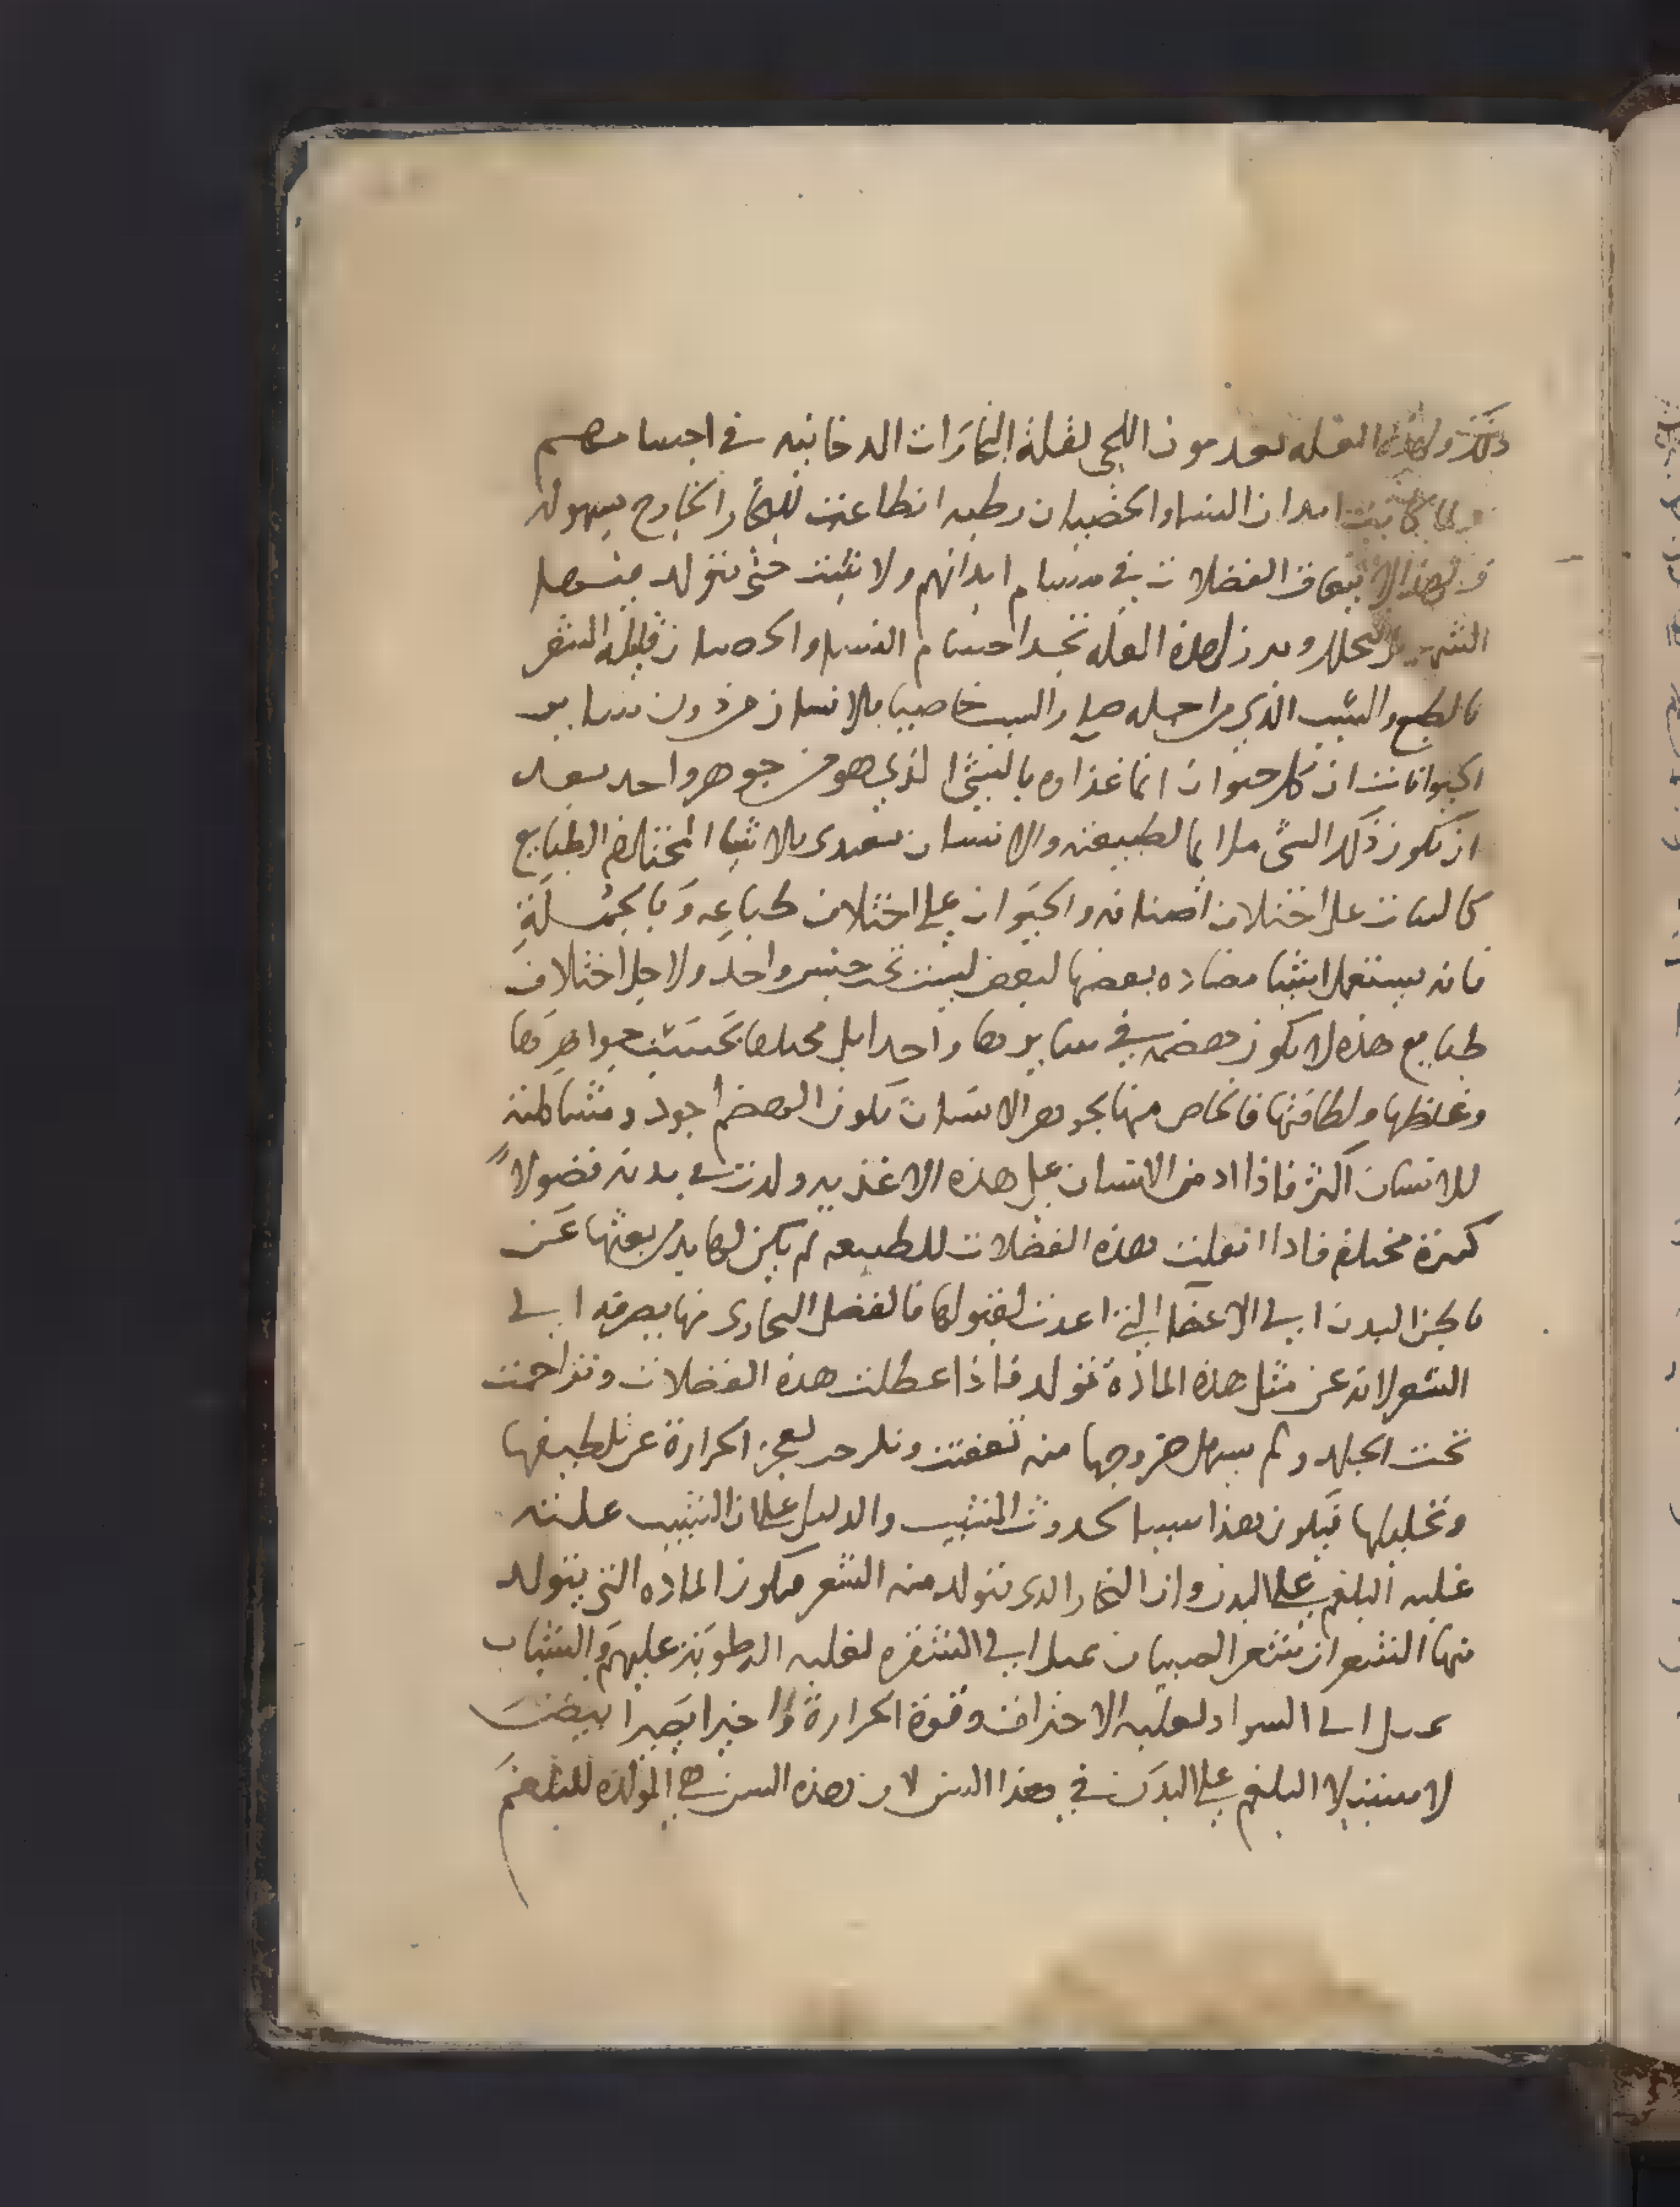 ذلك ولهذه العله يعدمون اللحى لقلة البخارات الدخانيه في اجسامهم
ولما كانت ابدان النسا والخصيان رطبه انطاعت للبخار الخارج بسهوله
ولهذا لا تبقا الفضلات في مسام ابدانهم ولا تثبت حتى يتولد منها
الشعر بل تتحلل ولهذه العله نجد اجسام النسا والخصيان قليله الشعر
بالطبع والسبب الذي من اجله صار الشيب خاصيا بالانسان من دون ساير
الحيوانات ان كل حيوان انما غذاوه بالشي الذي هو من جوهر واحد بعد
ان يكون ذلك الشي ملايما لطبيعته والانسان يغتدى بالاشيا المختلفه الطبايع
كالنبات على اختلاف اصنافه والحيوان على اختلاف طباعه وبالجملة
فانه يستعمل اشيا مضاده بعضها لبعض ليست تحت جنس واحد ولاجل اختلاف
طبايع هذه لا يكون هضمه في سايرها واحدا بل مختلفا بحسب جواهرها
وغلظها ولطافتها فالخاص منها بجوهر الانسان يكون الهضم اجود ومشاكلته
للانسان اكثر فاذا ادمن الانسان على هذه الاغذيه ولدت في بدنه فضولا
كثيرة مختلفه فاذا اثقلت هذه الفضلات للطبيعه لم يكن لها بد من بعثها عن
باطن البدن الى الاعضا التي اعدت لقبولها فالفضل البخارى منها يصرفه الى
الشعر لانه عن مثل هذه المادة تولد فاذا عطلت هذه الفضلات وتزاحمت
تحت الجلد ولم يسهل خروجها منه تعفنت وتلزجت لعجز الحرارة عن تلطيفها
وتحليلها فيكون هذا سببا لحدوث الشيب والدليل على ان الشيب علته
غلبه البلغم على البدن وان البخار الدى يتولد منه الشعر هو المادة التي يتولد
منها الشعر ان شعر الصبيان يميل الى الشقره لغلبه الرطوبة عليهم والشباب
يميل الى السواد لغلبه الاحتراق وقوة الحرارة واخيرا يصير ابيض
لاستيلا البلغم على البدن في هذا السن لان هذه السن هي المولدة للبلغم